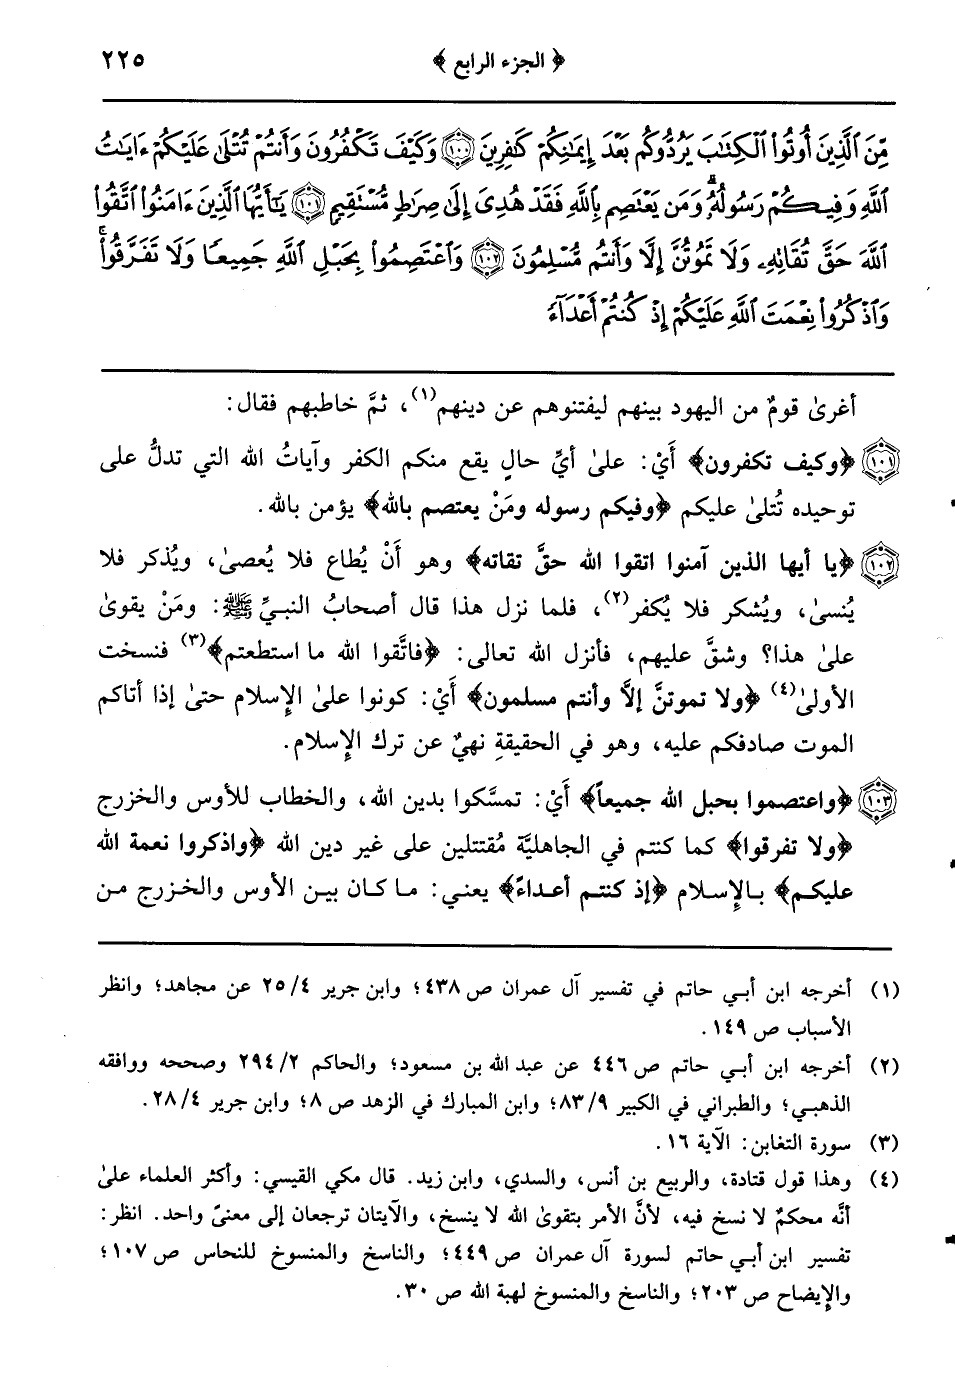 ﴿ الجزء الرابع ﴾ ٢٢٥
مِّنَ ٱلَّذِينَ أُوتُوا۟ ٱلْكِتَٰبَ يَرُدُّوكُم بَعْدَ إِيمَٰنِكُمْ كَٰفِرِينَ ﴿١٠٠﴾ وَكَيْفَ تَكْفُرُونَ وَأَنتُمْ تُتْلَىٰ عَلَيْكُمْ ءَايَٰتُ
ٱللَّهِ وَفِيكُمْ رَسُولُهُۥ ۗ وَمَن يَعْتَصِم بِٱللَّهِ فَقَدْ هُدِىَ إِلَىٰ صِرَٰطٍ مُّسْتَقِيمٍ ﴿١٠١﴾ يَٰٓأَيُّهَا ٱلَّذِينَ ءَامَنُوا۟ ٱتَّقُوا۟
ٱللَّهَ حَقَّ تُقَاتِهِۦ وَلَا تَمُوتُنَّ إِلَّا وَأَنتُم مُّسْلِمُونَ ﴿١٠٢﴾ وَٱعْتَصِمُوا۟ بِحَبْلِ ٱللَّهِ جَمِيعًا وَلَا تَفَرَّقُوا۟ ۚ
وَٱذْكُرُوا۟ نِعْمَتَ ٱللَّهِ عَلَيْكُمْ إِذْ كُنتُمْ أَعْدَآءً
أغرىٰ قومٌ من اليهود بينهم ليفتنوهم عن دينهم(١)، ثمَّ خاطبهم فقال:
﴿١٠١﴾ ﴿وكيف تكفرون﴾ أَيْ: علىٰ أيِّ حالٍ يقع منكم الكفر وآياتُ الله التي تدلُّ على
توحيده تُتلىٰ عليكم ﴿وفيكم رسوله ومَنْ يعتصم بالله﴾ يؤمن بالله.
﴿١٠٢﴾ ﴿يا أيها الذين آمنوا اتقوا الله حقَّ تقاته﴾ وهو أَنْ يُطاع فلا يُعصىٰ، ويُذكر فلا
يُنسىٰ، ويُشكر فلا يُكفر(٢)، فلما نزل هذا قال أصحابُ النبيِّ ﷺ: ومَنْ يقوىٰ
علىٰ هذا؟ وشقَّ عليهم، فأنزل الله تعالى: ﴿فاتَّقوا الله ما استطعتم﴾(٣) فنسخت
الأولىٰ(٤) ﴿ولا تموتنَّ إلاَّ وأنتم مسلمون﴾ أَيْ: كونوا علىٰ الإِسلام حتىٰ إذا أتاكم
الموت صادفكم عليه، وهو في الحقيقةِ نهيٌ عن ترك الإِسلام.
﴿١٠٣﴾ ﴿واعتصموا بحبل الله جميعاً﴾ أَيْ: تمسَّكوا بدين الله، والخطاب للأوس والخزرج
﴿ولا تفرقوا﴾ كما كنتم في الجاهليَّة مُقتتلين على غير دين الله ﴿واذكروا نعمة الله
عليكم﴾ بالإِسلام ﴿إذ كنتم أعداءً﴾ يعني: ما كان بين الأوس والخزرج من
(١) أخرجه ابن أبي حاتم في تفسير آل عمران ص ٤٣٨؛ وابن جرير ٢٥/٤ عن مجاهد؛ وانظر
الأسباب ص ١٤٩.
(٢) أخرجه ابن أبي حاتم ص ٤٤٦ عن عبد الله بن مسعود؛ والحاكم ٢٩٤/٢ وصححه ووافقه
الذهبي؛ والطبراني في الكبير ٨٣/٩؛ وابن المبارك في الزهد ص ٨؛ وابن جرير ٢٨/٤.
(٣) سورة التغابن: الآية ١٦.
(٤) وهذا قول قتادة، والربيع بن أنس، والسدي، وابن زيد. قال مكي القيسي: وأكثر العلماء علىٰ
أنَّه محكمٌ لا نسخ فيه، لأنَّ الأمر بتقوىٰ الله لا ينسخ، والآيتان ترجعان إلى معنىً واحد. انظر:
تفسير ابن أبي حاتم لسورة آل عمران ص ٤٤٩؛ والناسخ والمنسوخ للنحاس ص ١٠٧؛
والإِيضاح ص ٢٠٣؛ والناسخ والمنسوخ لهبة الله ص ٣٠.